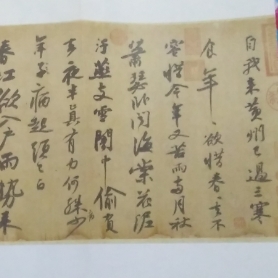 自我來黃州已過三寒
食年〻欲惜春〻去不
容惜今年又苦雨兩月秋
蕭瑟臥聞海棠花泥
汙燕支雪闇中偷負
去夜半真有力何殊少
年子病起頭已白
春江欲入戶雨勢來